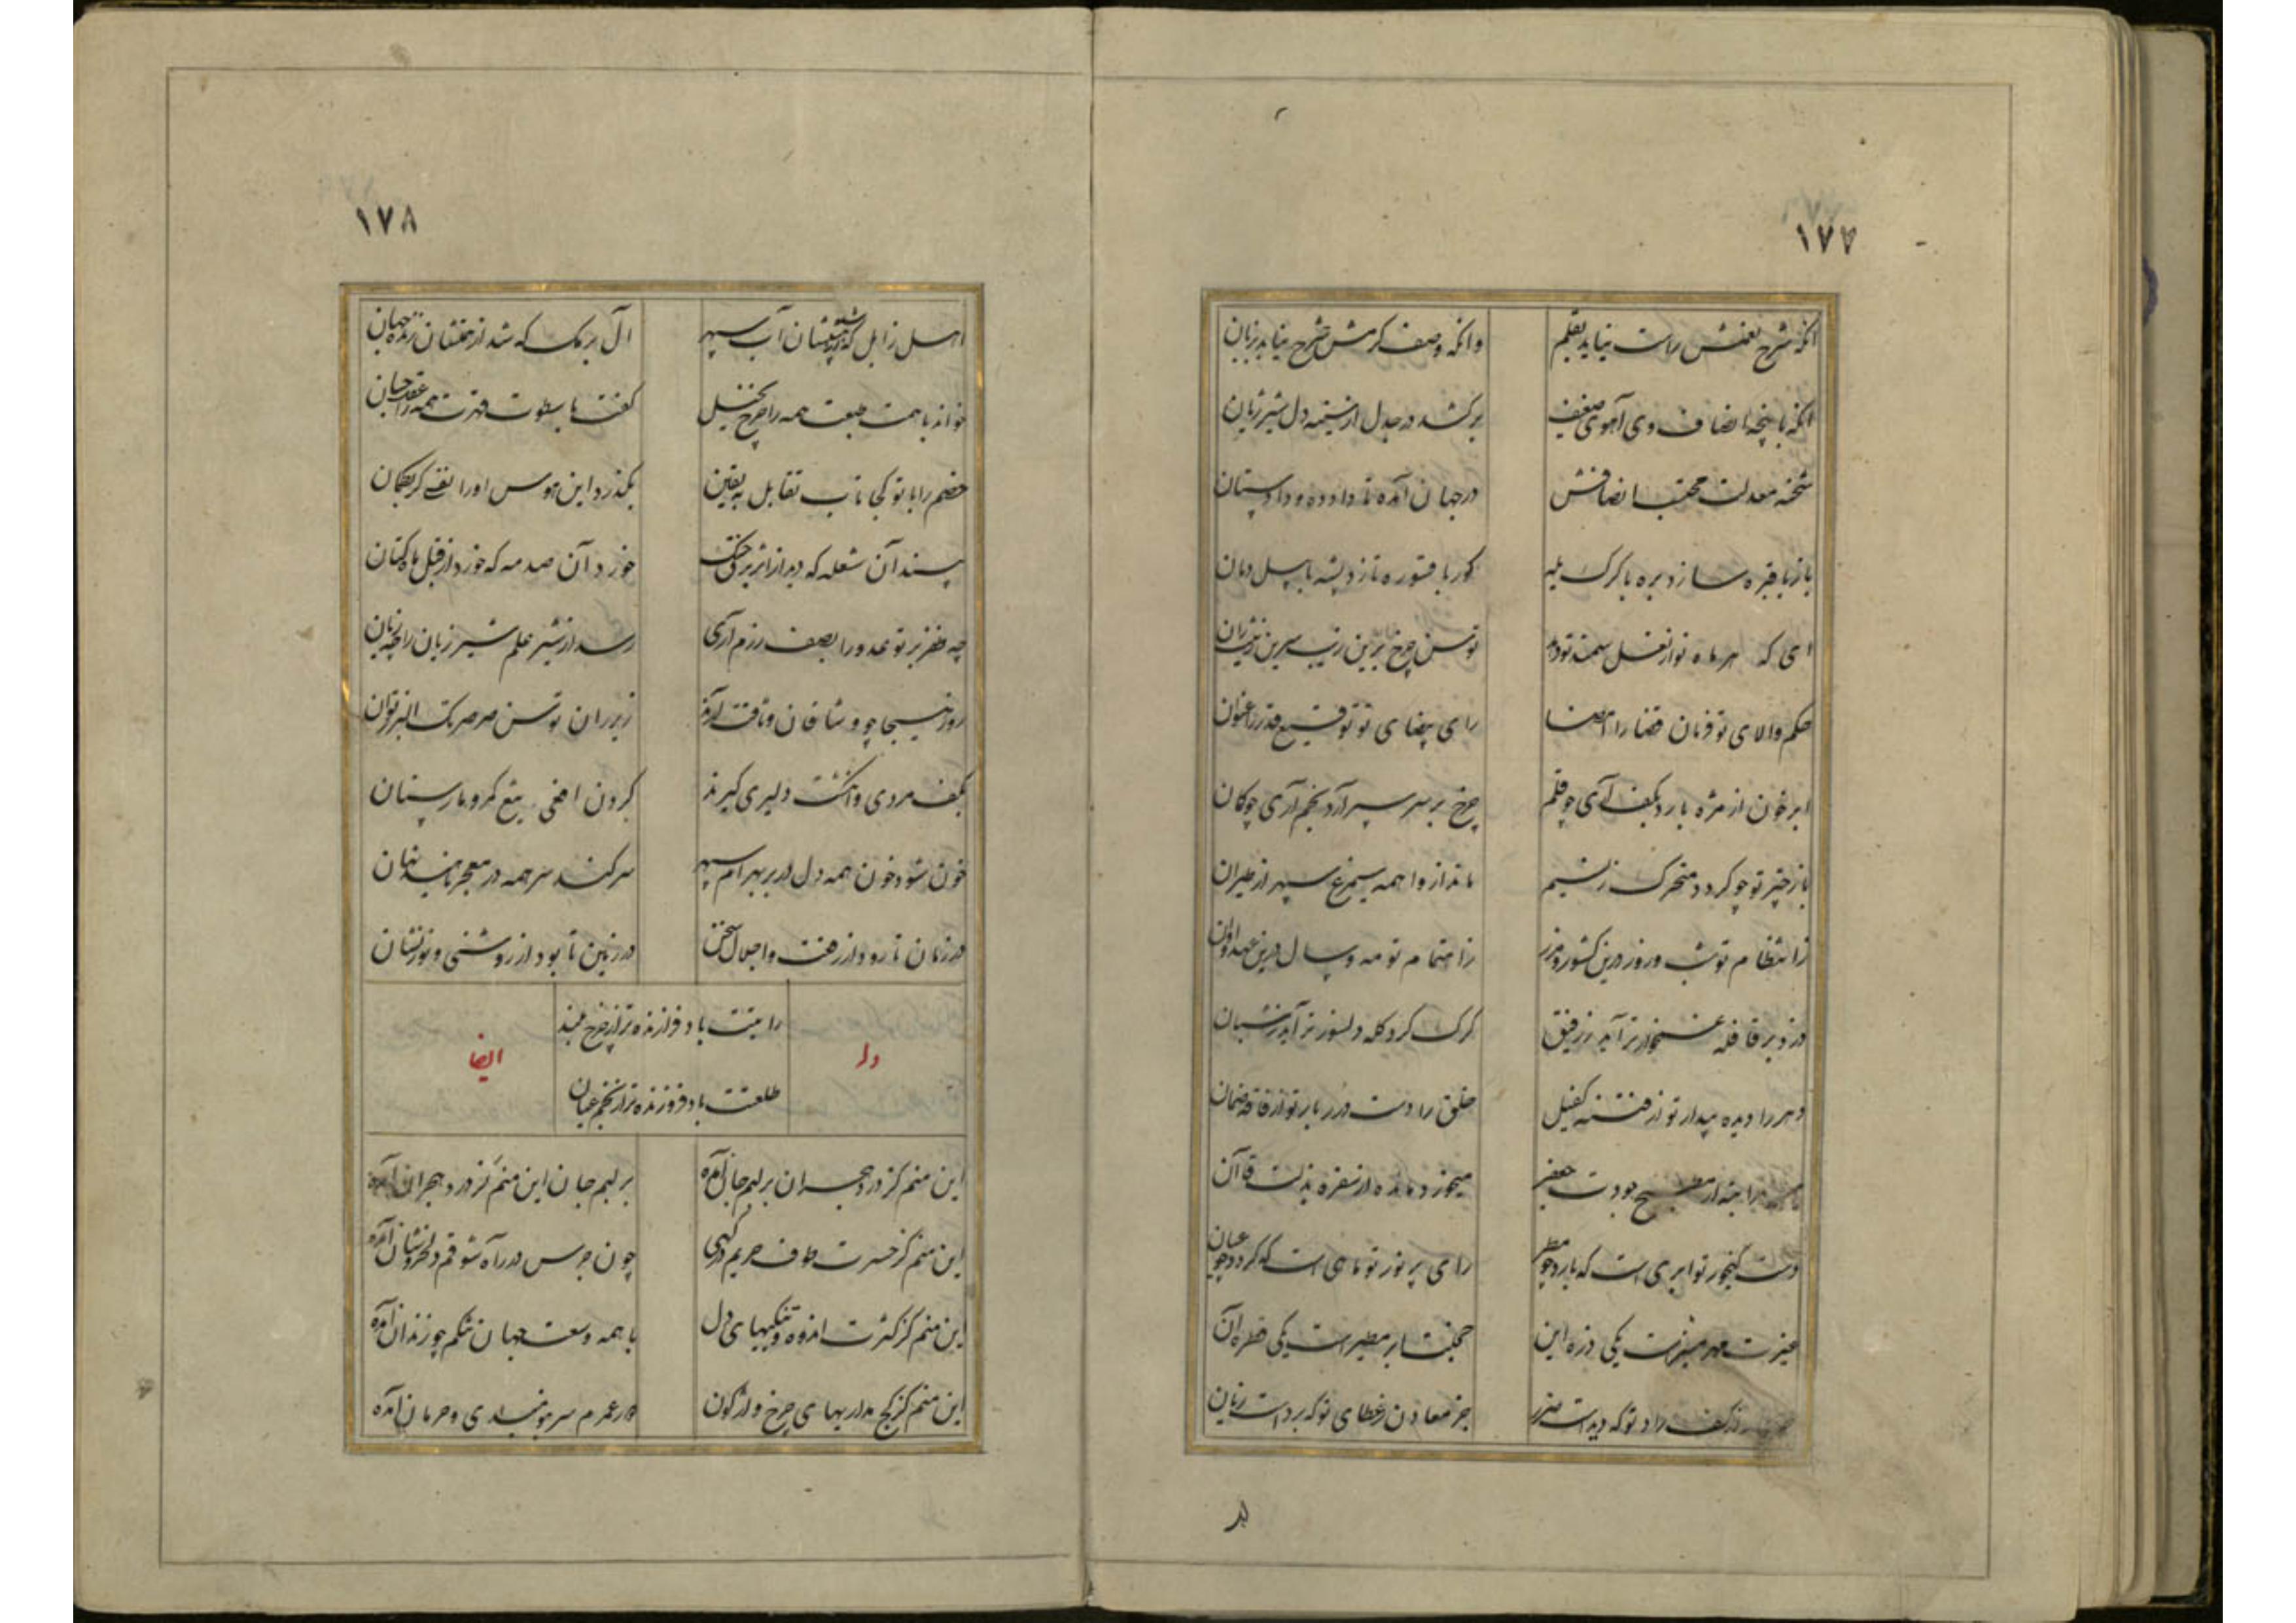 ۱۷۷
آنکه شرح نعمتش راست نیاید بقلم وآنکه وصف کرمش شرح نیاید بزبان
آنکه با پنجه انصاف وی آهوی ضعیف برکشد در جدل از سینه دل شیر ژیان
شحنه معدلت محتسب انصافش در جهان آمده تا داده و داد ستان
باز با قبره سازد بره با کرک پلید کور با قسوره تازد پشه با پیل دمان
ای که هر ماه نو از نعل سمند تو دهد توسن چرخ برین زیب سرین
حکم والای تو فرمان قضا را امضا رای بیضای تو توقیع قدر را عنوان
ابر خون از مژه بارد بکف آری چو قلم چرخ بر سر سپر آرد بخم آری چوکان
باز چتر تو چو کردد متحرک ز نسیم ماند از واهمه سیمرغ سپهر از طیران
ز انتظام تو شب و روز درین کشور و مرز ز اهتمام تو مه و سال درین عهد و اوان
دزد بر قافله غمخوارتر آید ز رفیق کرک کرد کله دلسوزتر آید ز شبان
دهر را دیده بیدار تو از فتنه کفیل خلق را دست درر بار تو از فاقه ضمان
جودت جعفر میخورد مائده از سفره بذلت قاآن
دست کنجور تو ابری است که بارد چو مطر رای پر نور تو ماهی است که کردد چو عیان
غیرت مهر منیرست یکی ذره این خجلت ابر مطیر است یکی قطره آن
کف راد تو که دیدست ضرر جز معادن ز عطای تو که بردست زیان
۱۷۸
اهل زابل که شد از تیغشان آب سپهر آل برمک که شد از همتشان زنده جهان
خواند با همت طبعت همه را چرخ بخیل کفت با سطوت قهرت همه را عقل جبان
خصم را با تو کجا تاب تقابل به یقین بکذرد این هوس او را نفسی کر بکمان
بیند آن شعله که دید از اثر برق خشک خورد آن صدمه که خورد از قبل ماه کتان
چه ظفر بر تو عدو را بصف رزم آری رسد از شیر علم شیر ژیان را چه زیان
روز هیجا چو وشاقان وثاقت آرند زیر ران توسن صرصر تک البرز توان
بکف مردی و انکشت دلیری کیرند کرزن افعی تیغ کهر و مار سنان
خون شود خون همه دل در بر بهرام سپهر سر کند سر همه در معجر ناهید نهان
در زمان تا رود از رفعت و اجلال سخن در زمین تا بود از روشنی و نور نشان
رایتت باد فرازنده‌تر از چرخ بلند
وله ایضا
طلعتت باد فروزنده‌تر از نجم عیان
این منم کز درد هجران بر لبم جان آمده بر لبم جان این منم کز درد هجران آمده
این منم کز حسرت طوف حریم درکهی چون جرس در راه شوقم دل خروشان آمده
این منم کز کثرت اندوه و تنکیهای دل با همه وسعت جهان تنکم چو زندان آمده
این منم کز کج مداریهای چرخ واژکون در عمرم سر بنومیدی و حرمان آمده